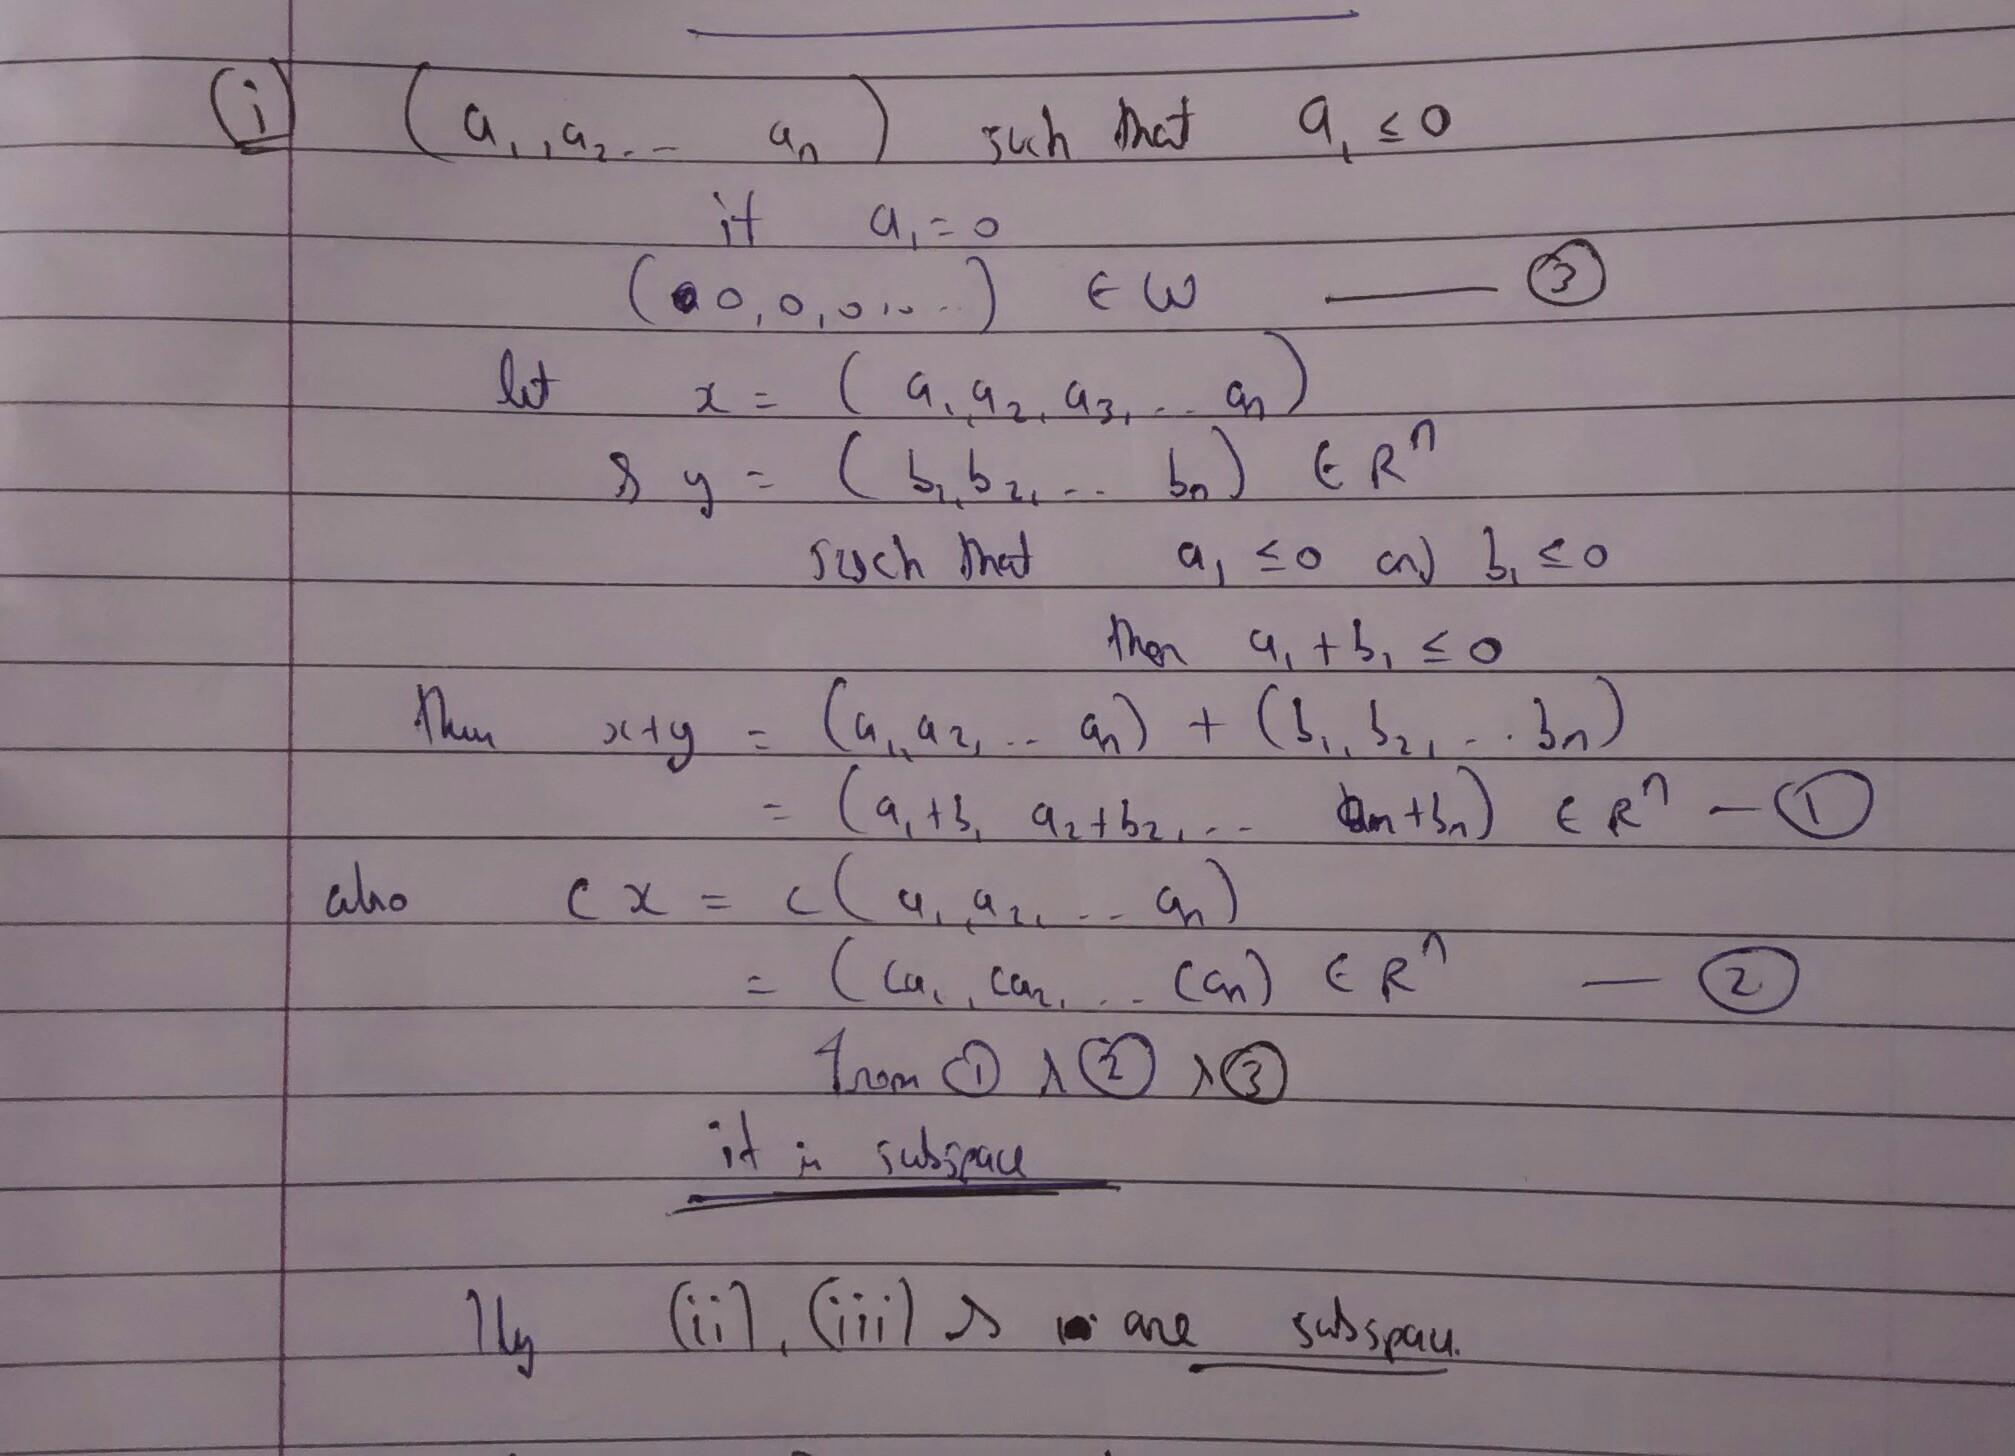 (i) (a₁, a₂, .. -- aₙ) such that a₁ ≤ 0
if a₁ = 0
(0, 0, 0, ...) ∈ W —— ③
let x = (a₁, a₂, a₃, ... aₙ)
& y = (b₁, b₂, ... bₙ) ∈ Rⁿ
such that a₁ ≤ 0 and b₁ ≤ 0
then a₁ + b₁ ≤ 0
then x+y = (a₁, a₂, .. aₙ) + (b₁, b₂, ... bₙ)
= (a₁+b₁ a₂+b₂, ... aₙ+bₙ) ∈ Rⁿ — ①
also cx = c(a₁, a₂, ... aₙ)
= (ca₁, ca₂, ... caₙ) ∈ Rⁿ — ②
from ① & ② & ③
it is subspace
lly (ii), (iii) & are subspace.